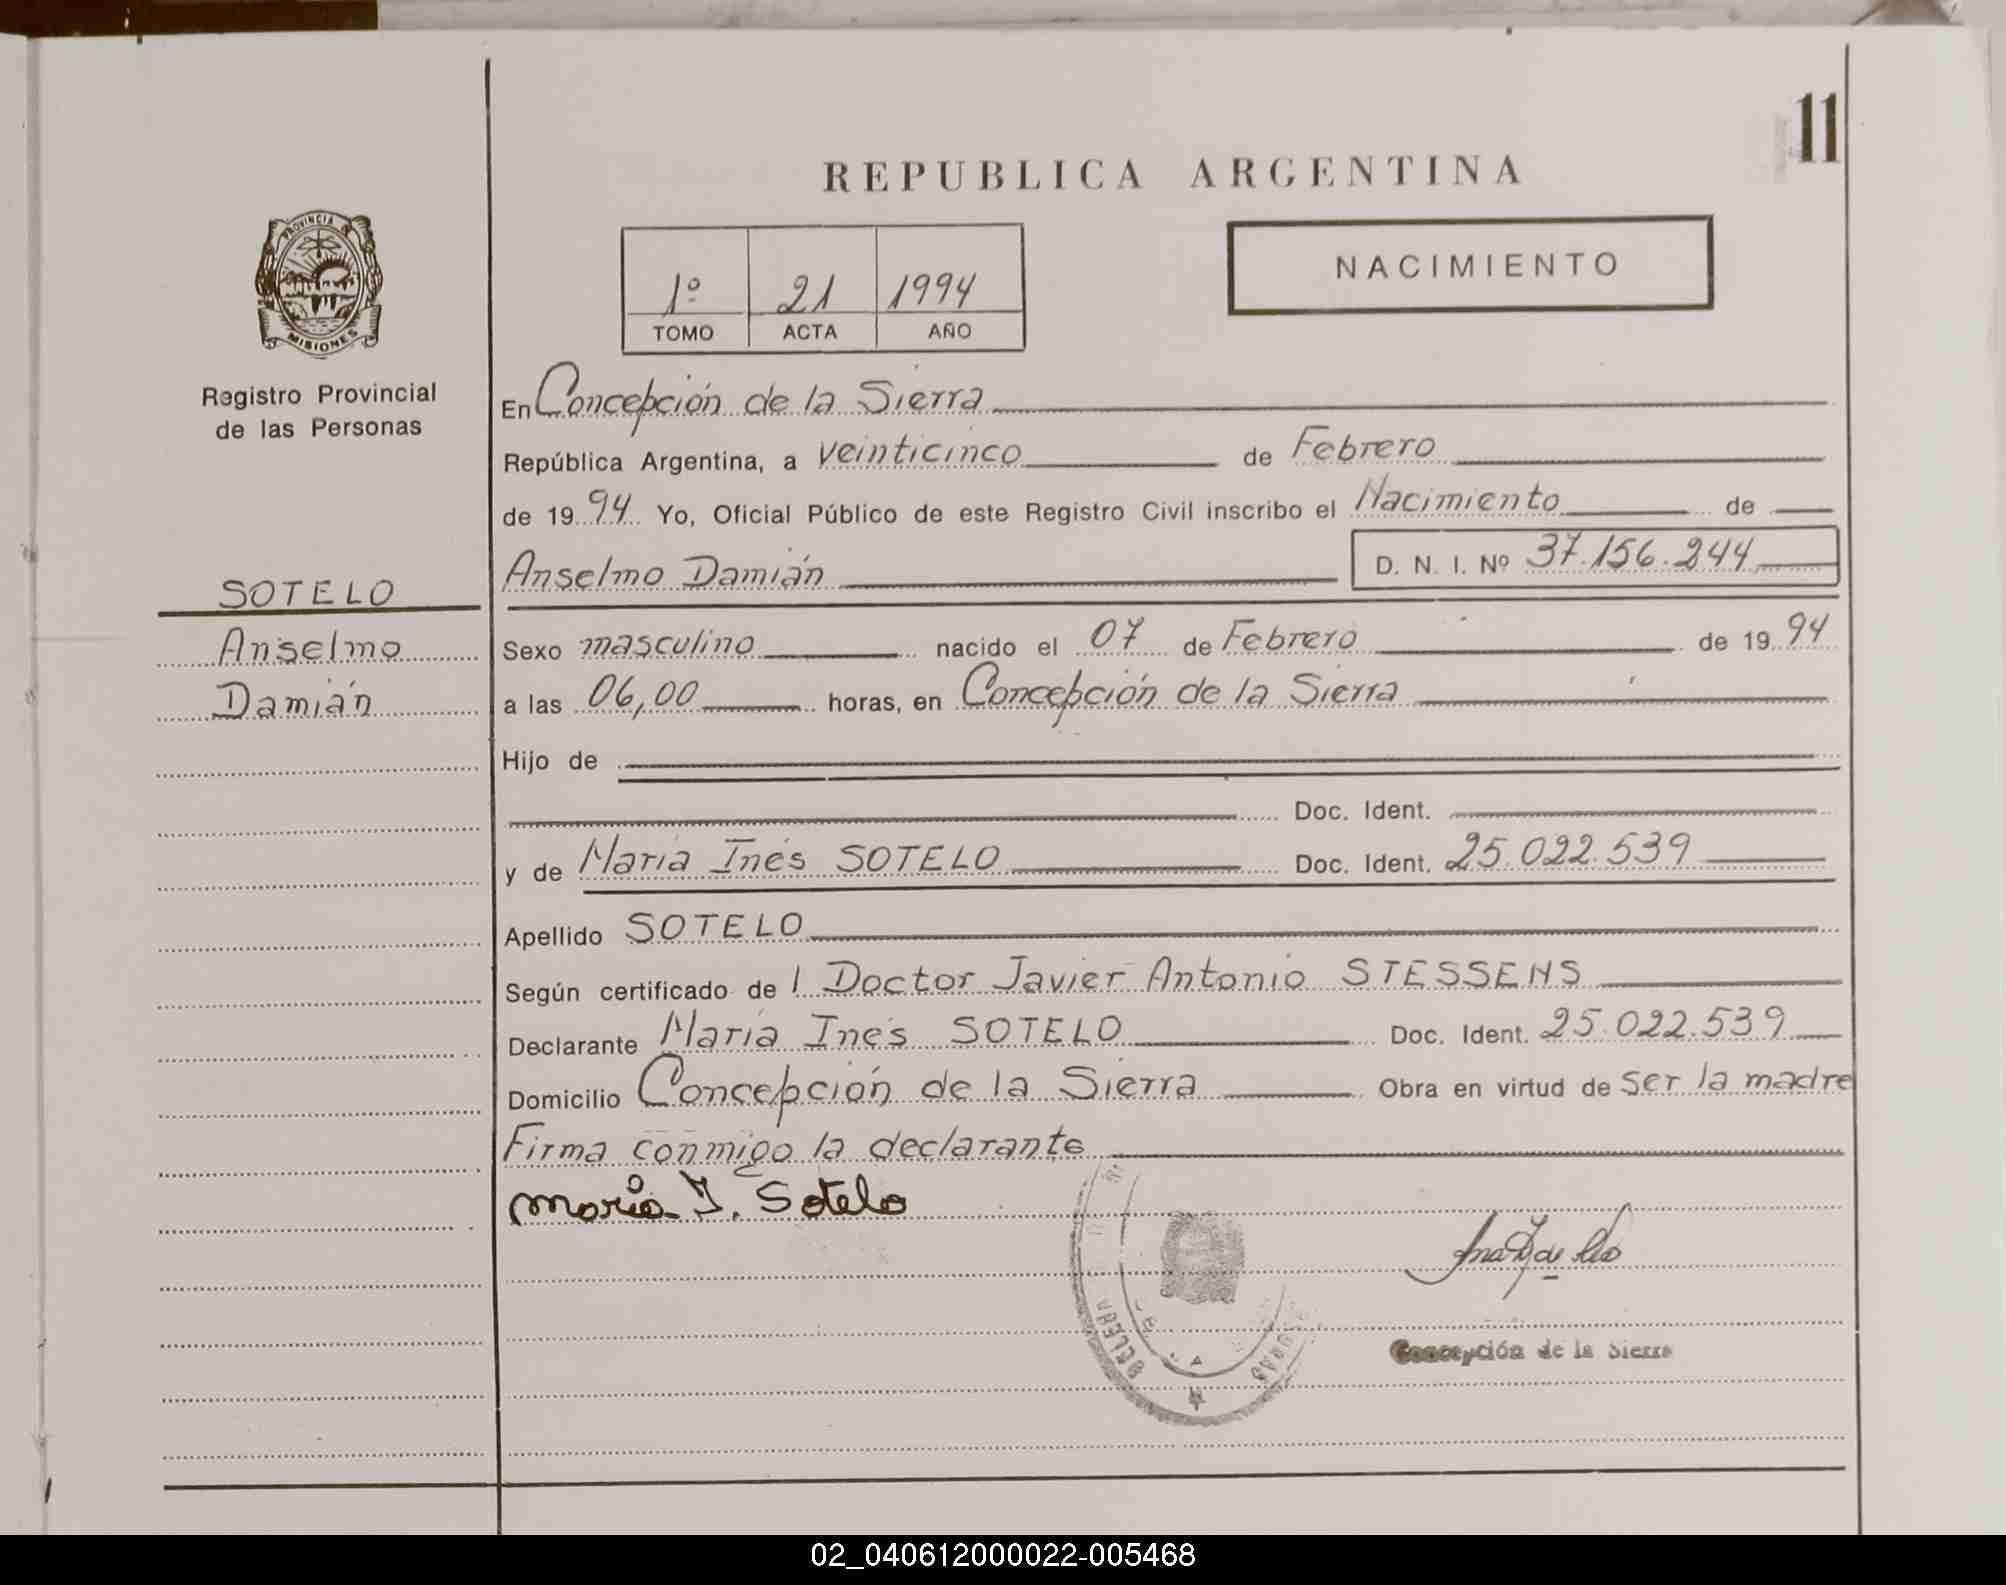 11
REPUBLICA ARGENTINA
PROVINCIA DE
MISIONES
Registro Provincial
de las Personas
1º 21 1994
TOMO ACTA AÑO
NACIMIENTO
En Concepción de la Sierra
República Argentina, a veinticinco de Febrero
de 19 94 Yo, Oficial Público de este Registro Civil inscribo el Nacimiento de
Anselmo Damián D. N. I. Nº 37.156.244
SOTELO
Anselmo
Damián
Sexo masculino nacido el 07 de Febrero de 19 94
a las 06,00 horas, en Concepción de la Sierra
Hijo de
Doc. Ident.
y de María Inés SOTELO Doc. Ident. 25.022.539
Apellido SOTELO
Según certificado de l Doctor Javier Antonio STESSENS
Declarante María Inés SOTELO Doc. Ident. 25.022.539
Domicilio Concepción de la Sierra Obra en virtud de ser la madre
Firma conmigo la declarante
María I. Sotelo
Concepción de la Sierra
02_040612000022-005468